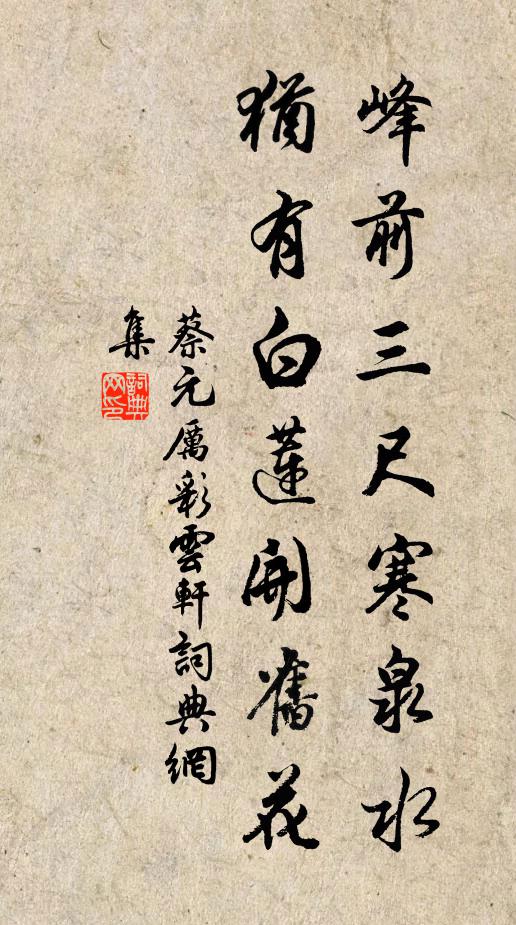 峰前三尺寒泉水
猶有白蓮開舊花
蔡元厲彩雲軒詞典網
集
詞典
网印